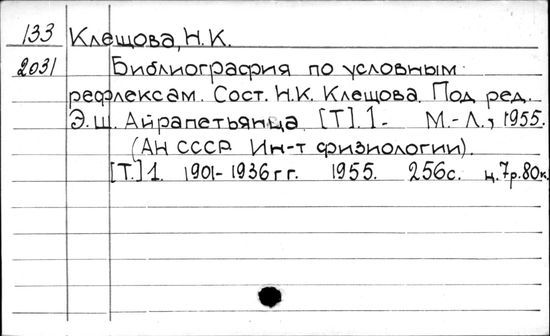 133 Клещова, Н.К.
2031 Библиография по условным
рефлексам. Сост. Н.К. Клещова. Под ред.
Э.Ш. Айрапетьянца. [Т]. 1- М.-Л., 1955.
(АН СССР Ин-т физиологии).
[Т.] 1. 1901-1936 гг. 1955. 256с. ц.7р.80к.